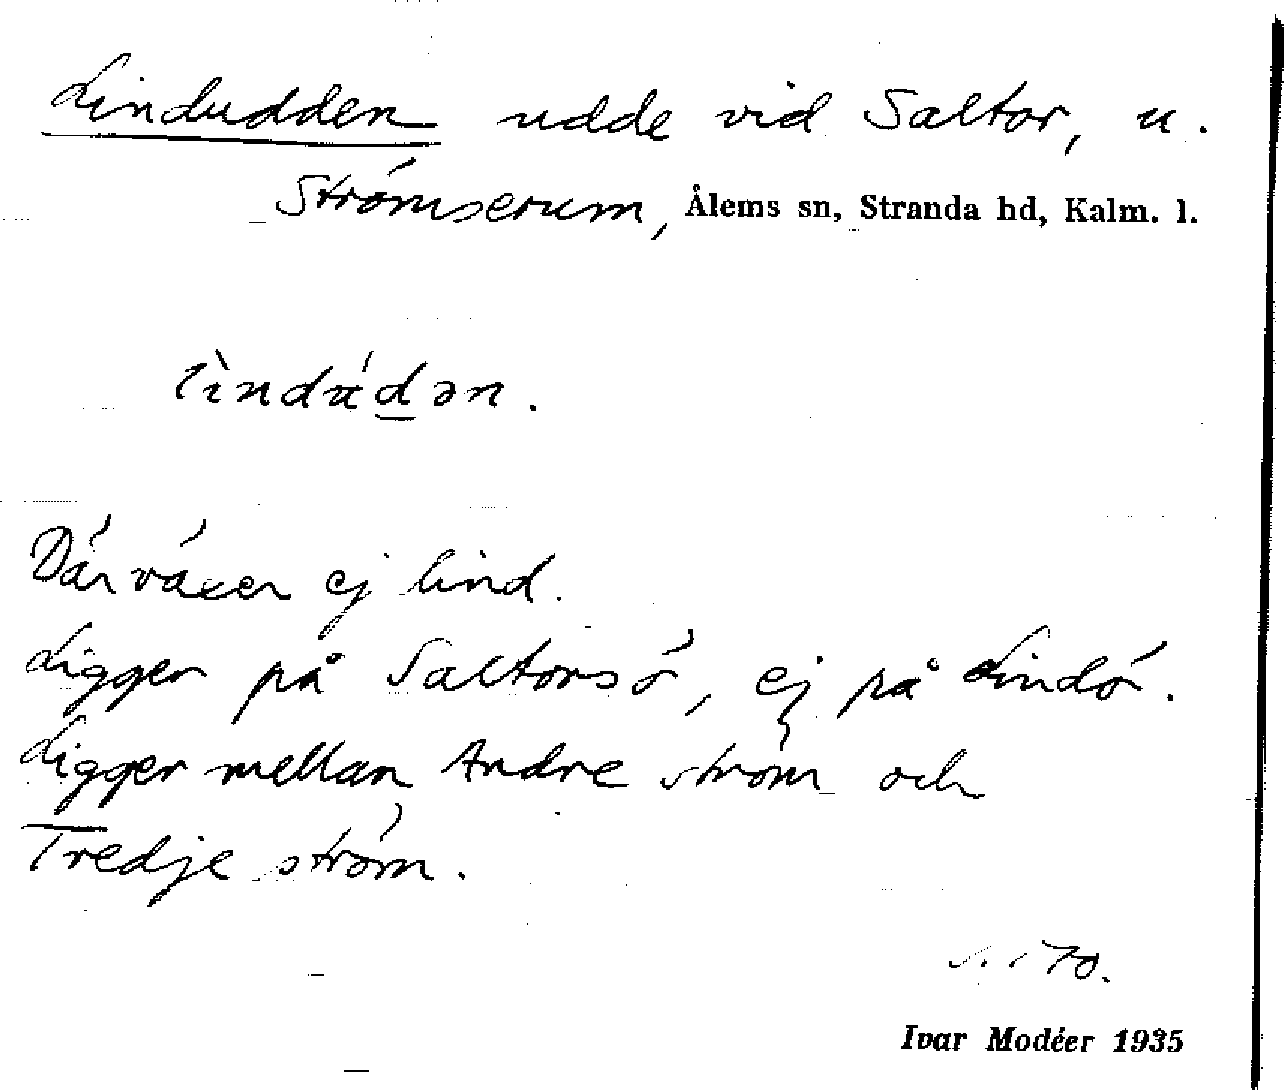 Lindudden udde vid Saltor, u.
Strömserum, Ålems sn, Stranda hd, Kalm. l.
lìndúdən.
Där växer ej lind.
Ligger på Saltorsö, ej på Lindö.
Ligger mellan Andre ström och
Tredje ström.
s. 170.
Ivar Modéer 1935